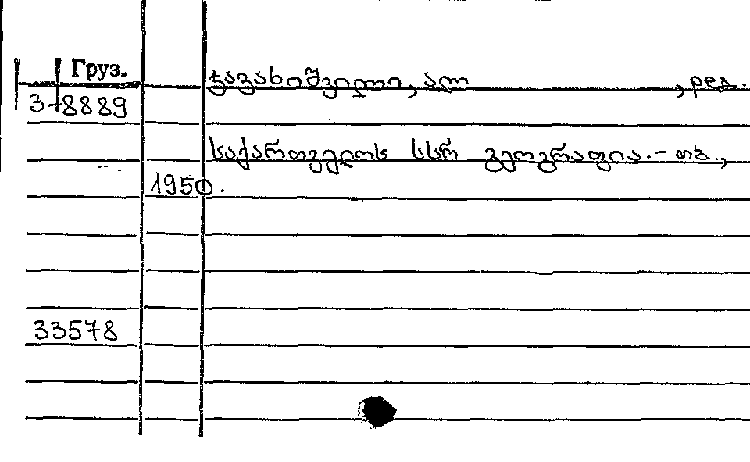 Груз.
ჯავახიშვილი, ალ , ред.
3-8889
საქართველოს სსრ გეოგრაფია. - თბ.,
1950.
33578